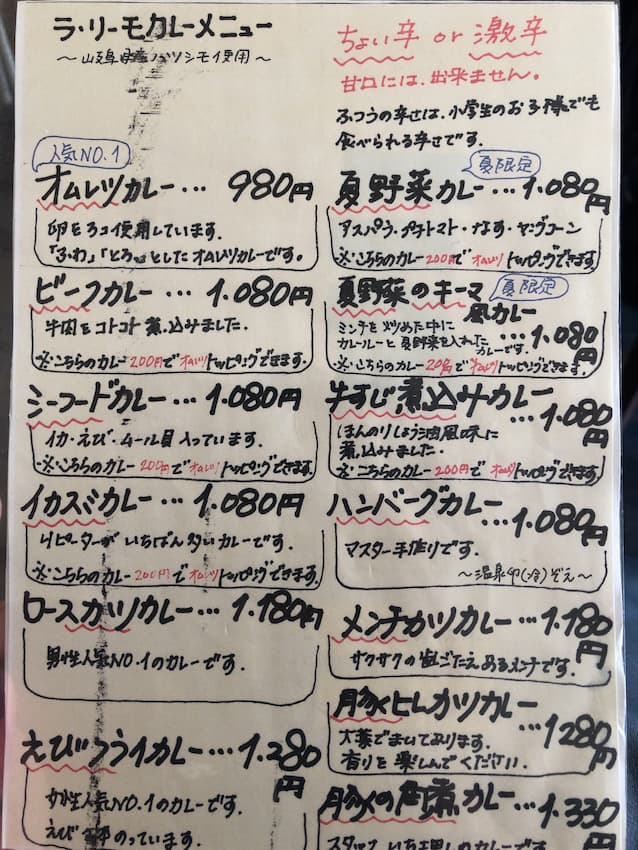 ラ・リーモカレーメニュー
～岐阜県産ハツシモ使用～
ちょい辛 or 激辛
甘口には、出来ません。
ふつうの辛さは、小学生のお子様でも
食べられる辛さです。
人気NO.1
オムレツカレー… 980円
卵を3コ使用しています.
「ふわ」「とろっ」としたオムレツカレーです。
ビーフカレー… 1.080円
牛肉をコトコト煮込みました.
※こちらのカレー200円でオムレツトッピングできます.
シーフードカレー…1.080円
イカ・えび・ムール貝入っています.
※こちらのカレー200円でオムレツトッピングできます.
イカスミカレー…1.080円
リピーターがいちばん多いカレーです.
※こちらのカレー200円でオムレツトッピングできます.
ロースカツカレー…1.180円
男性人気NO.1のカレーです.
えびフライカレー…1.280円
女性人気NO.1のカレーです.
えび 本のっています.
夏限定
夏野菜カレー…1.080円
アスパラ・プチトマト・なす・ヤングコーン
※こちらのカレー200円でオムレツトッピングできます.
夏限定
夏野菜のキーマ風カレー
…1.080円
ミンチを炒めた中に
カレールーと夏野菜を入れた
カレーです.
※こちらのカレー200円でオムレツトッピングできます.
牛すじ煮込みカレー
…1.080円
ほんのりしょう油風味に
煮込みました.
※こちらのカレー200円でオムレツトッピングできます.
ハンバーグカレー
…1.080円
マスター手作りです.
～温泉卵(冷)ぞえ～
メンチかツカレー…1.180円
サクサクの歯ごたえあるメンチです.
豚ヒレカツカレー
…1280円
大葉でまいております.
香りを楽しんでください.
豚の角煮カレー…1.330
スタッフいち押しのカレーです